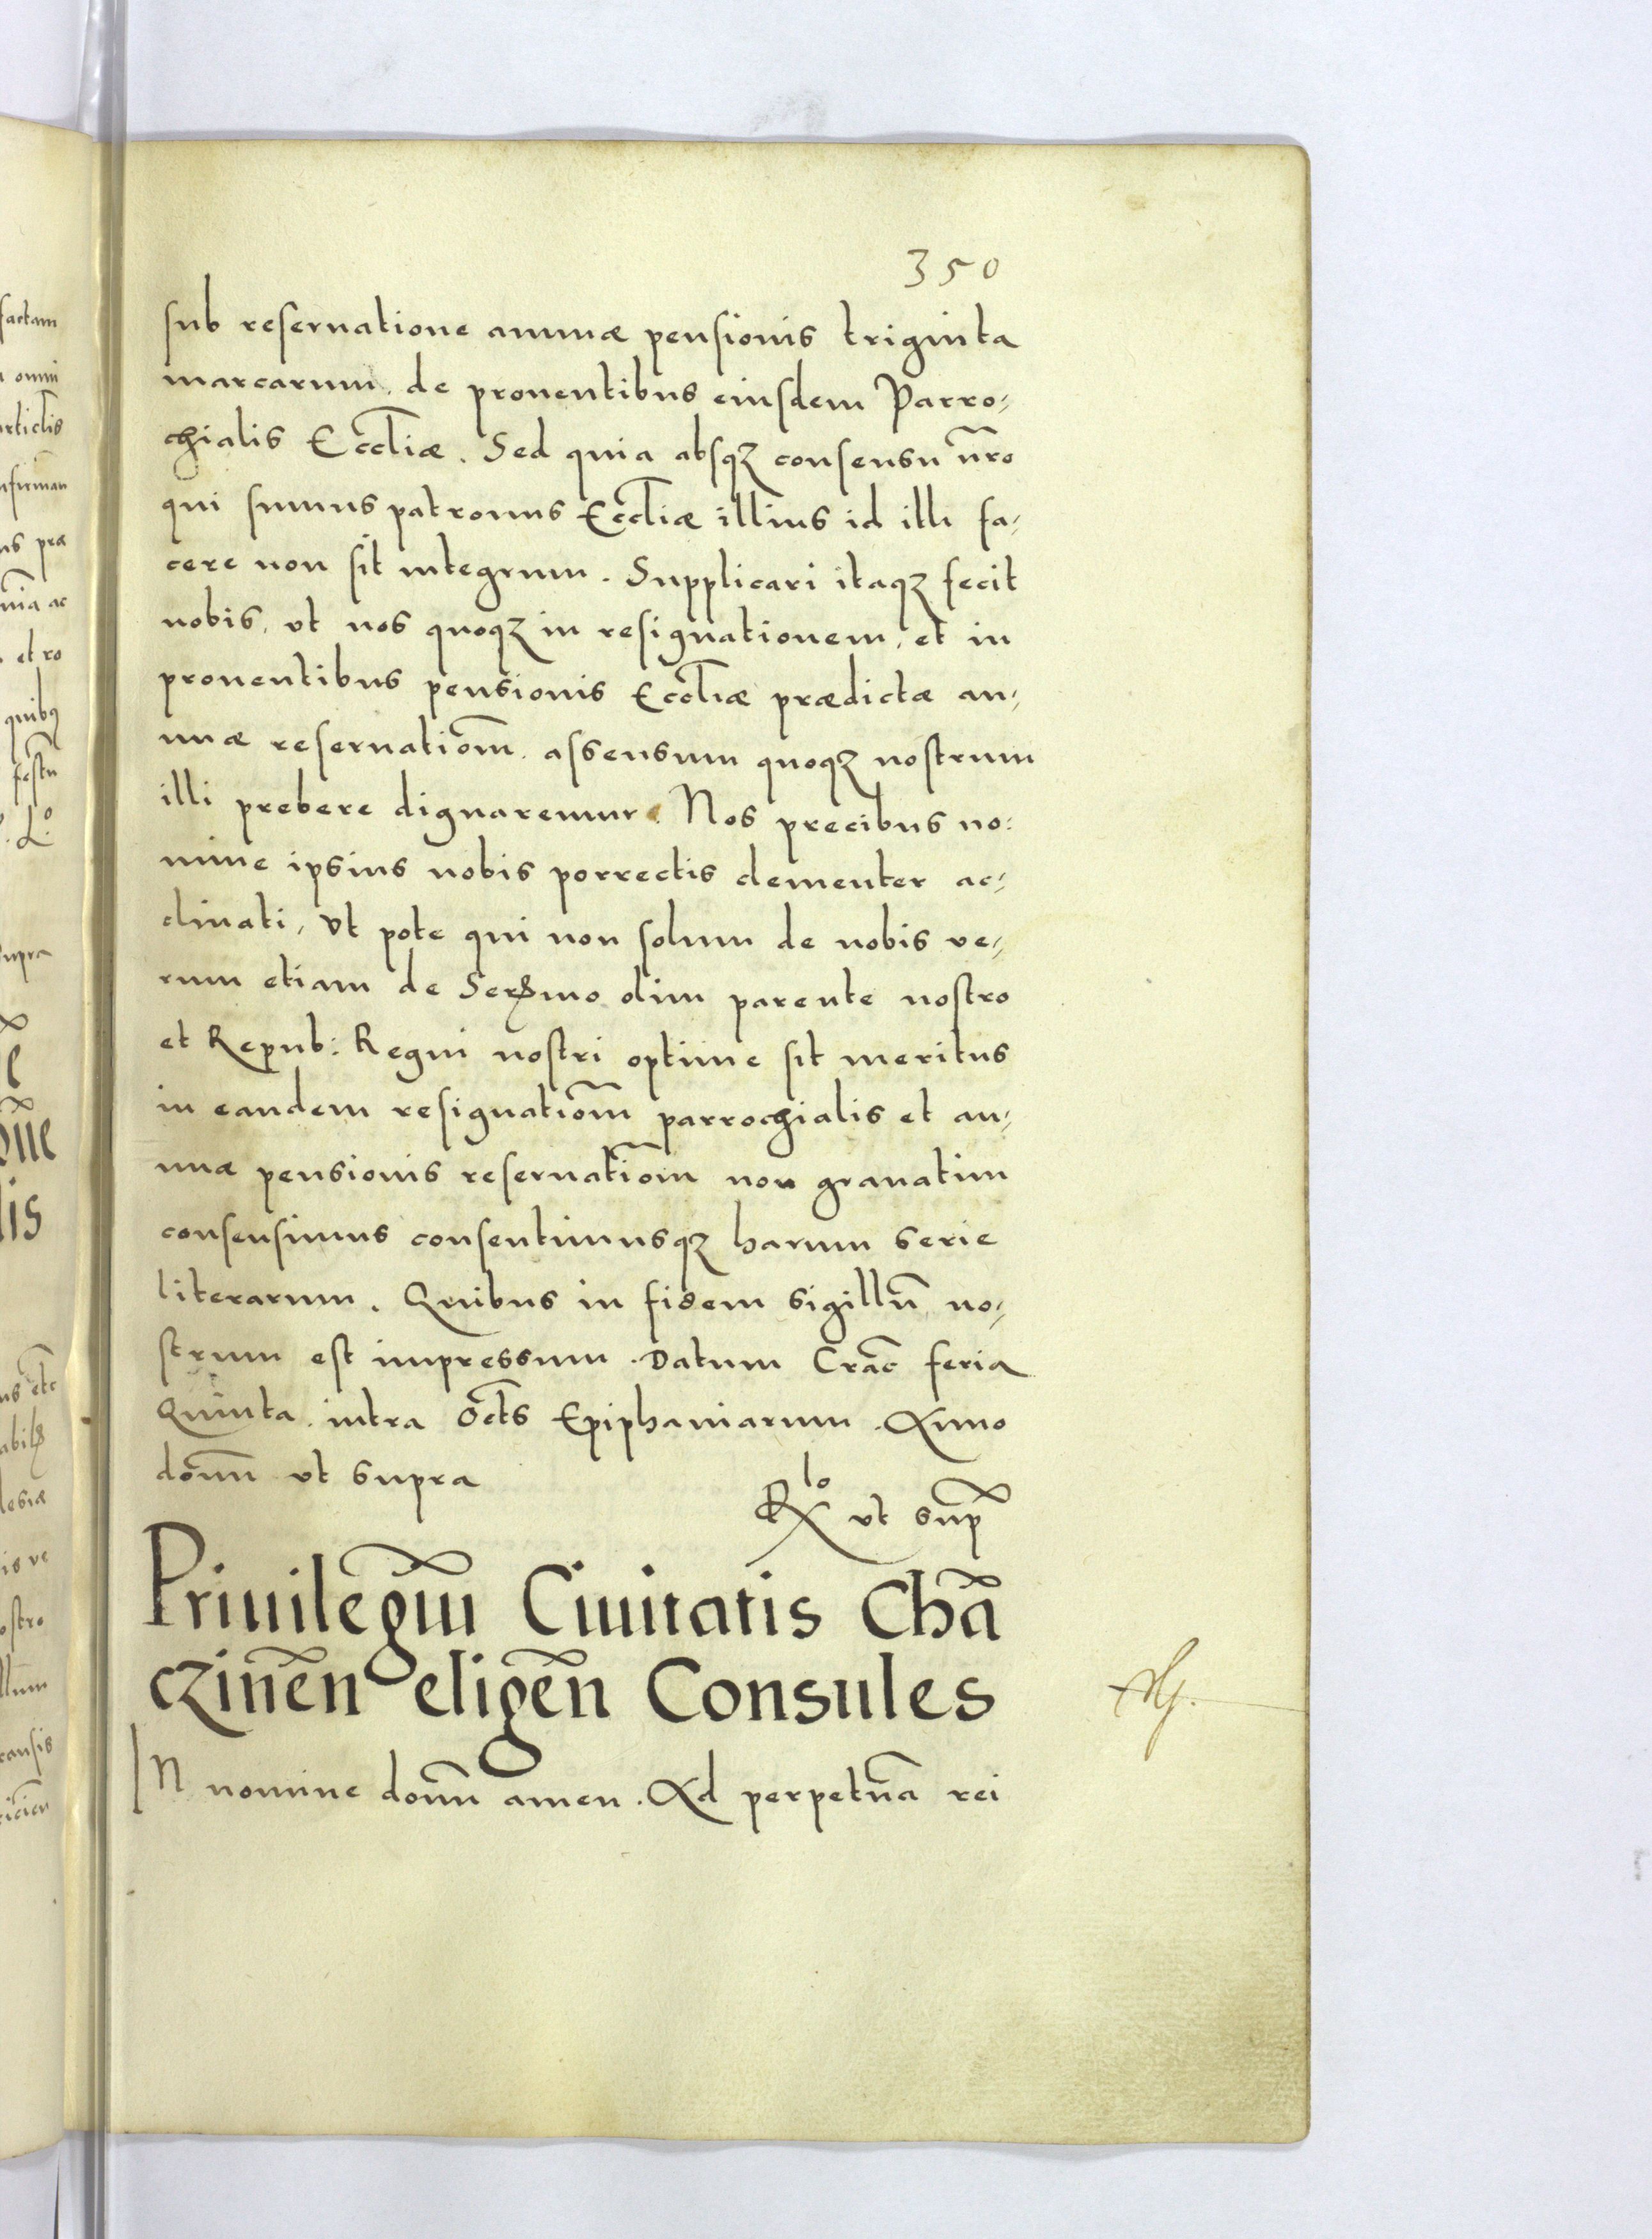 350
sub reseruatione annuæ pensionis triginta
marcarum, de prouentibus eiusdem Parro-
chialis Eccl̃iæ. Sed quia absqꝫ consensu nr̃o
qui sumus patronus Eccl̃iæ illius id illi fa-
cere non sit integrum. Supplicari itaqꝫ fecit
nobis, vt nos quoqꝫ in resignationem, et in
prouentibus pensionis Eccl̃iæ prædictæ an-
nuæ reseruatiõm assensum quoqꝫ nostrum
illi prebere dignaremur. Nos precibus no-
mine ipsius nobis porrectis clementer ac-
clinati, Vt pote qui non solum de nobis ve-
rum etiam de Serᵐᵒ olim parente nostro
et Repub: Regni nostri optime sit meritus
in eandem resignatiõm parrochialis et an-
nuæ pensionis reseruatiõm non grauatim
consensimus consentimusqꝫ harum serie
literarum. Quibus in fidem sigillũ no-
strum est impressum. Datum Crac̃ feria
Quinta intra Oct̃s Epiphaniarum. Anno
domĩ vt supra
vt sup̃
Priuileg̃m Ciuitatis Chã
czineñ eligeñ Consules
IN nomine domĩ amen. Ad perpetuã rei